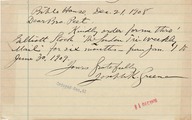 Bible House Dec. 21, 1908
Dear Bro. Peet
Kindly order for me this
Talbott Stock "The London Tri-Weekly
Mail" for six months - from Jan 1 to
June 30, 1909.
Yours gratefully
Joseph K. Greene